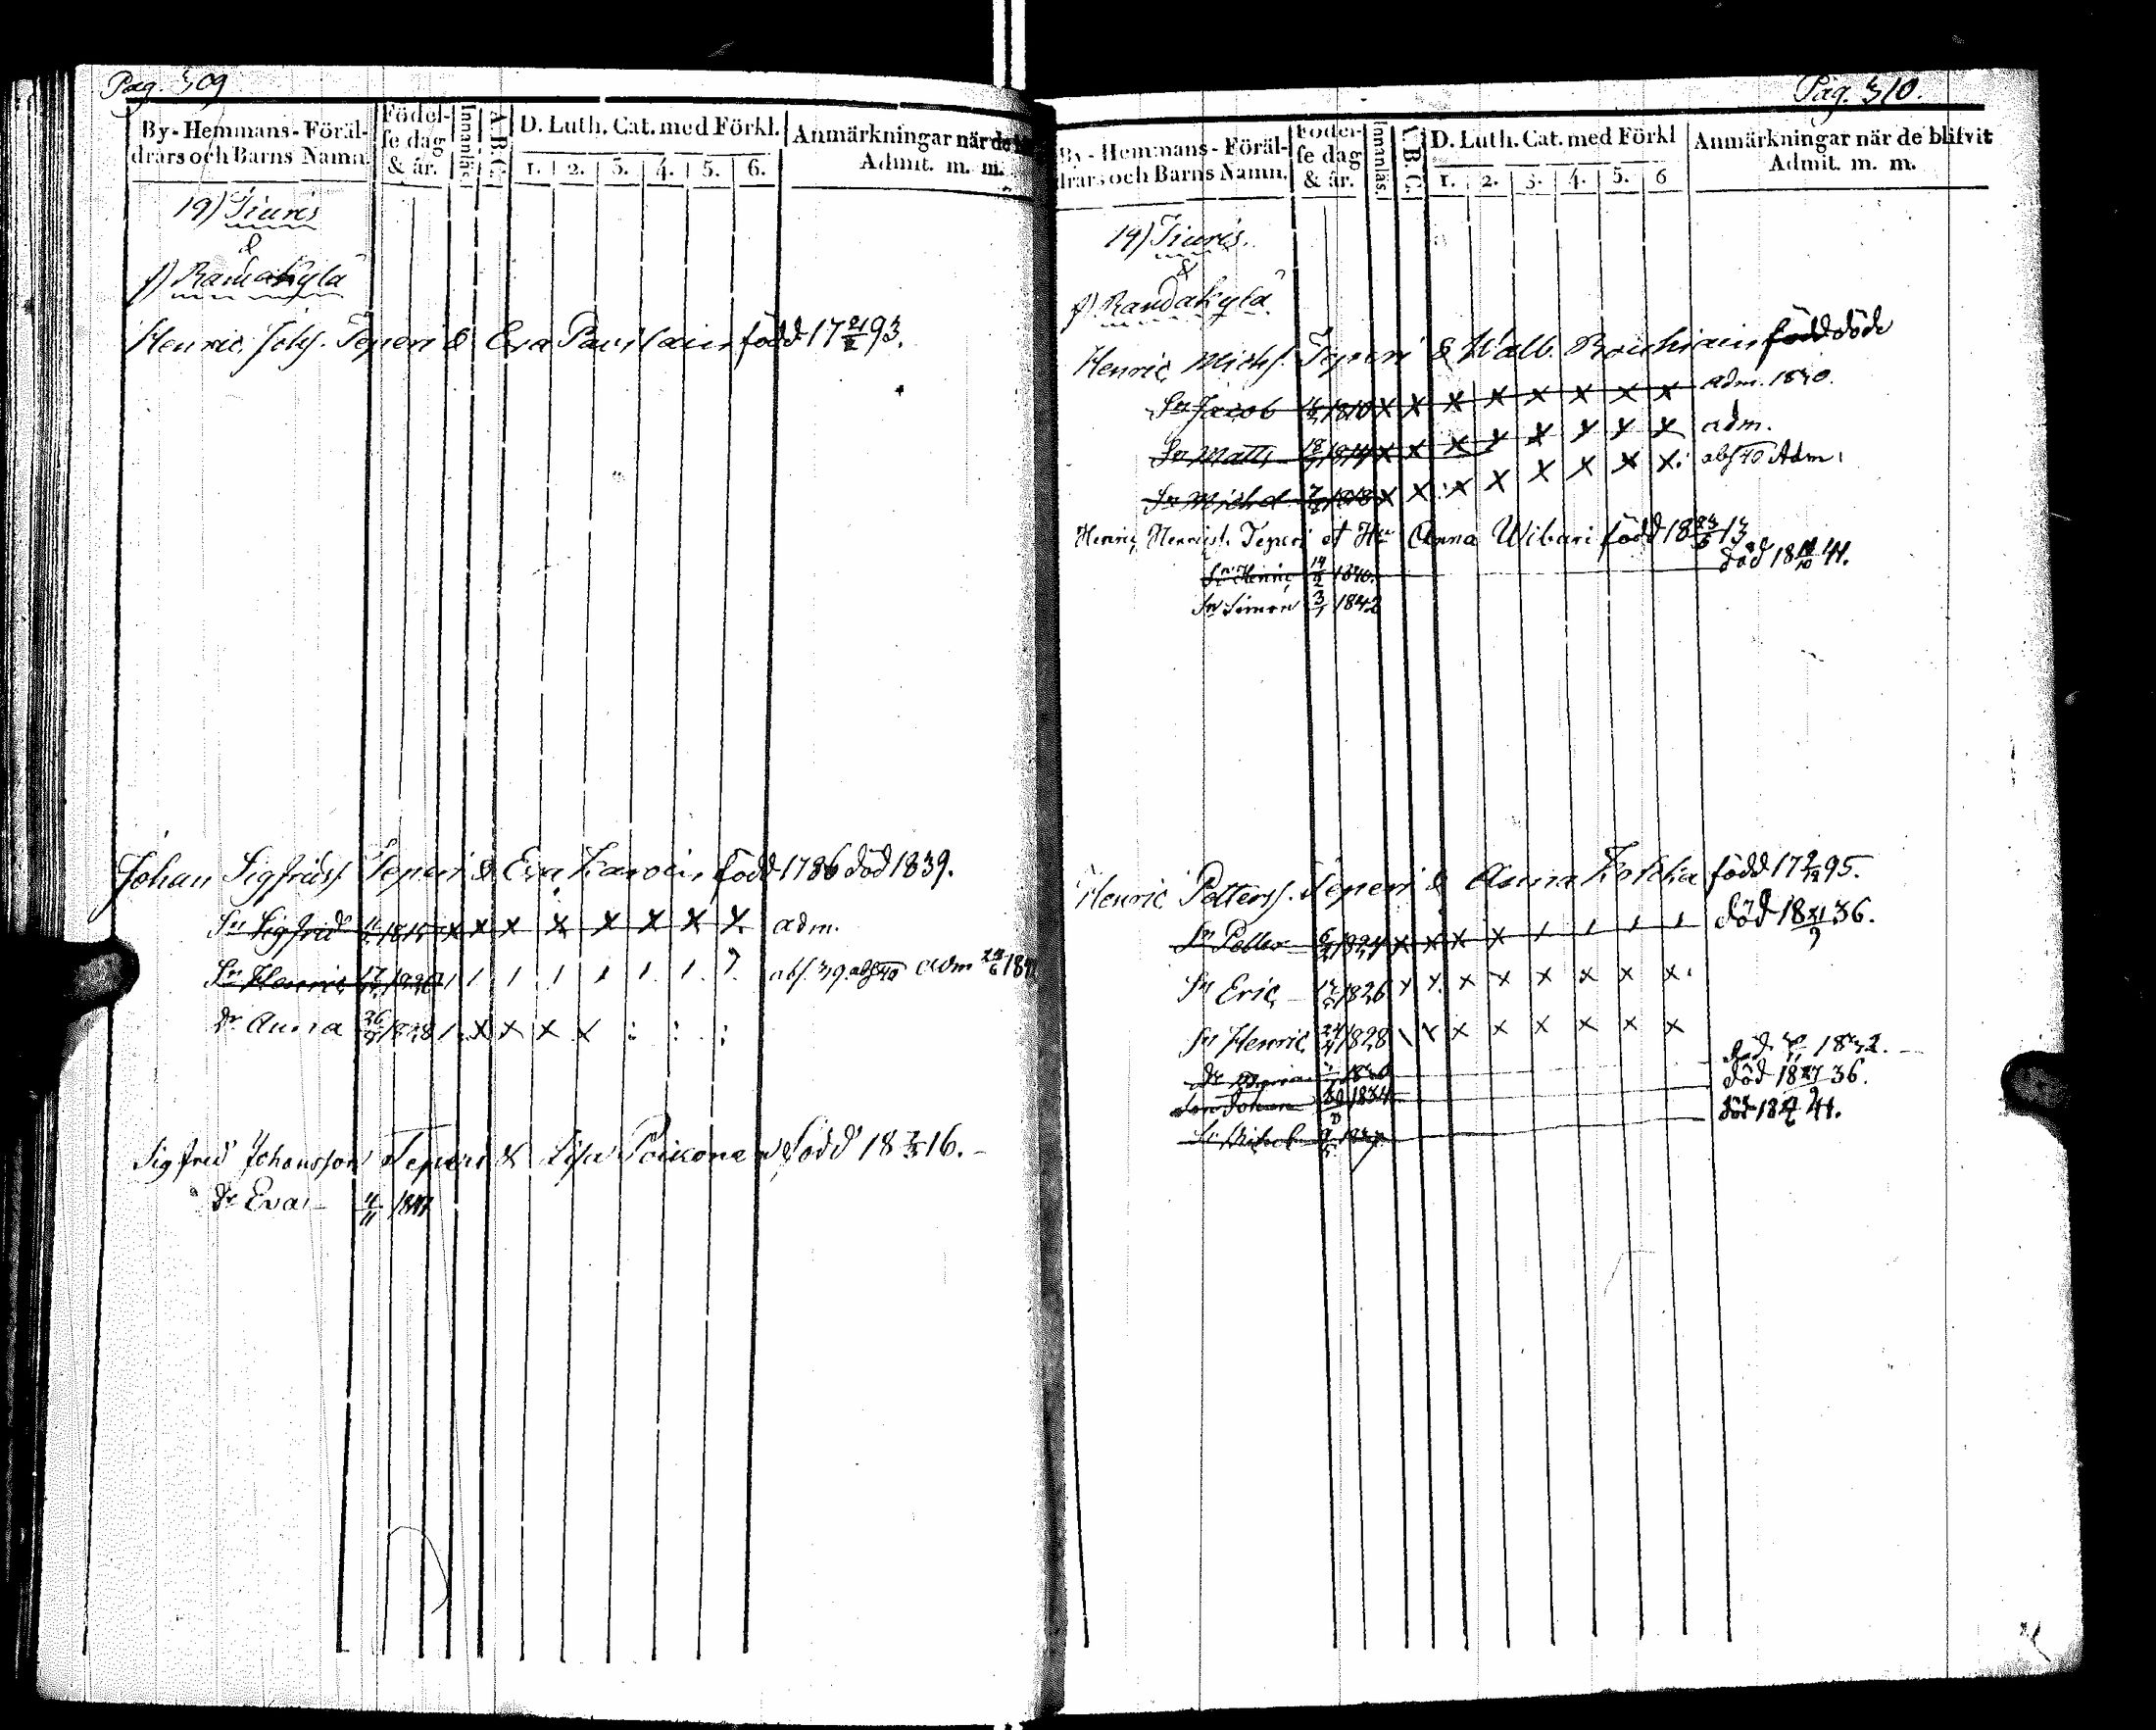 Pag. 309
By-Hemmans-Föräl-drars och Barns Namn. Födel-se dag & år. Innanläs. A.B.C. D. Luth. Cat. med Förkl. 1. 2. 3. 4. 5. 6. Anmärkningar när de Admit. m. m.
19) Tiuris
&
f) Randakylä
Henric Johs. Teperi & Eva född 17 21/2 93.
Johan Sigfridss. Teperi & Eva född 1786 död 1839.
Sn Sigfrid 1815 x x x x x x x x adm.
Sn Henric 17 1826 abs. 39. abs 40 adm 24/6 184
Dr Anna 26/9 1828 x x x x : : :
Sigfrid Johansson Teperi & Lisa Poikonen född 18 7/3 16.
Dr Eva 4/11 1841
Pag. 310.
By-Hemmans-Föräl-drars och Barns Namn. Födel-se dag & år. Innanläs. A.B.C. D. Luth. Cat. med Förkl 1. 2. 3. 4. 5. 6 Anmärkningar när de blifvit Admit. m. m.
19) Tiuris.
&
f) Randakylä
Henric Michs. Teperi & Walb. född döde
Sn Jacob 1810 x x x x x x x x adm. 1840.
Sn Matts 18 1814 x x x x x x x x adm.
Sn Michel 7 1818 x x x x x x x x abs 40 Adm:
Henric Henricss. Teperi et Hu Anna Wibari född 18 23/5 13
Sn Henric 14/2 1840. död 18 10 41.
Sn Simon 3/1 1842
Henric Petterss. Teperi & Anna född 17 2/12 95.
Sn Petter 6 1824 x x x x död 18 21/9 36.
Sn Eric 1826 x x x x x x x x
Sn Henric 24/4 1828 x x x x x x x
Dr Maria 1830 död
Son Johan 1834 död 18 36.
Sn Michel död 18 41.